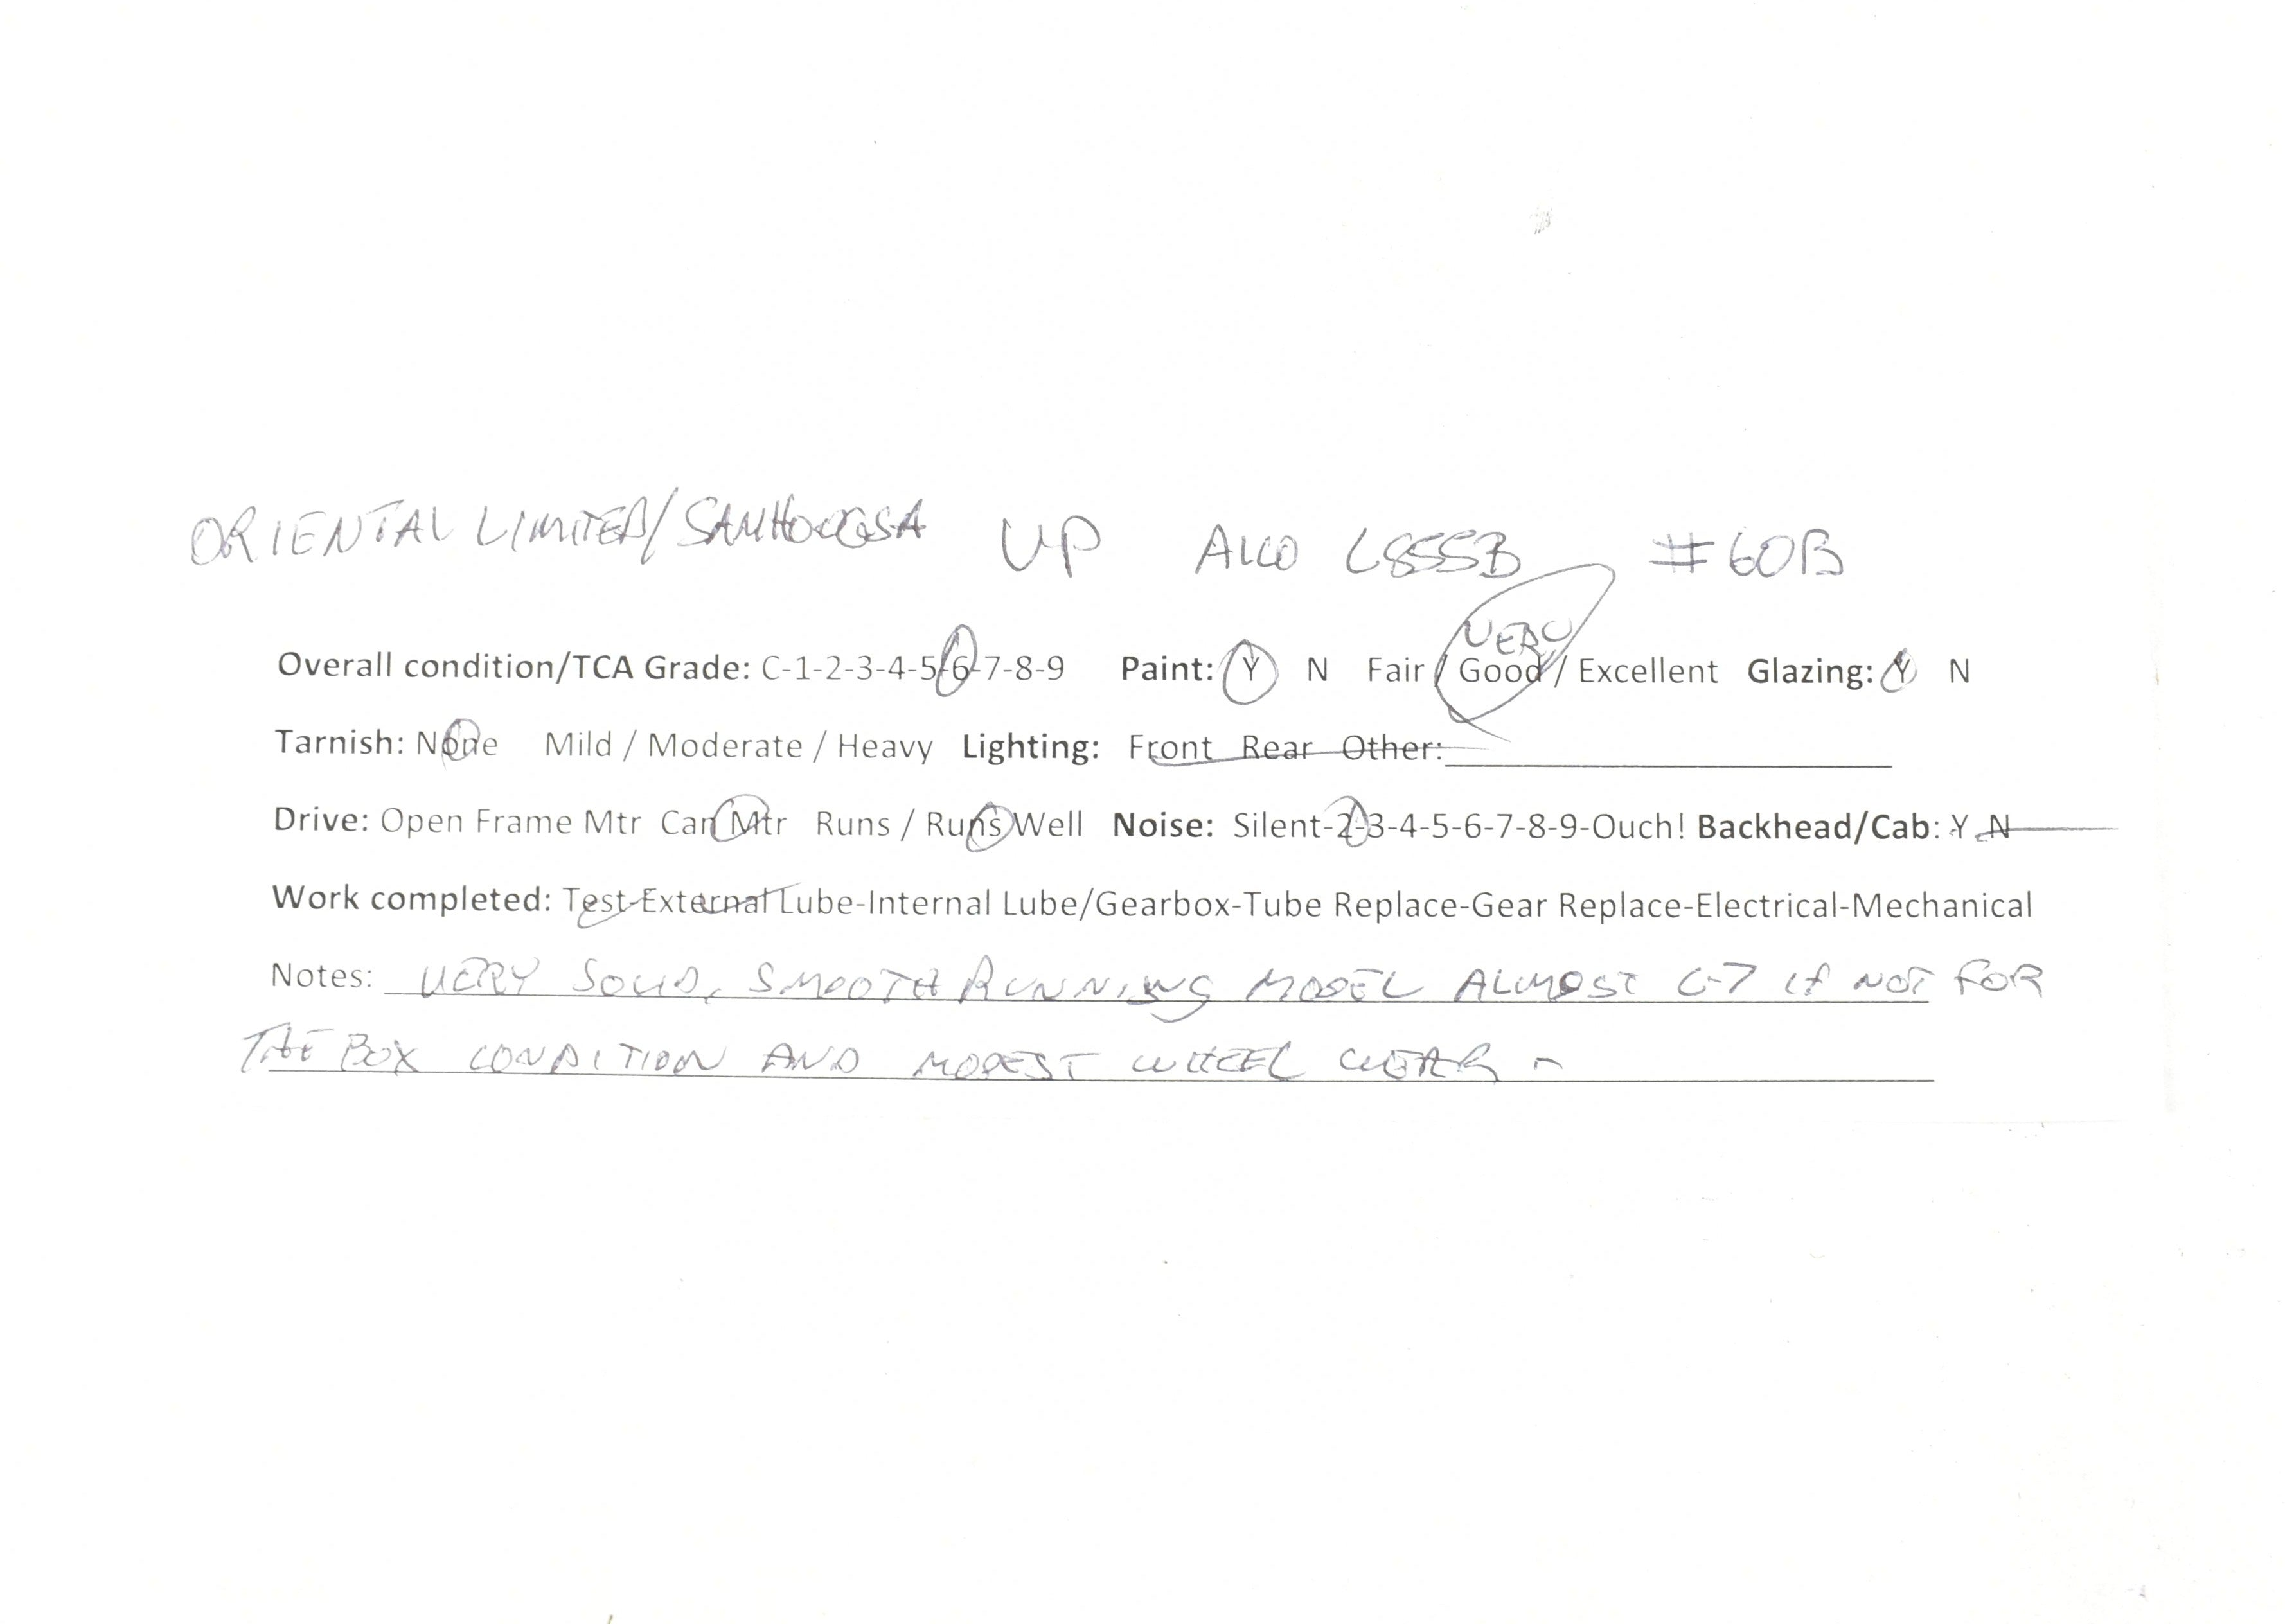 ORIENTAL LIMITED/SAMHONGSA UP ALCO C855B #60B
VERY
Overall condition/TCA Grade: C-1-2-3-4-5-6-7-8-9 Paint: Y N Fair / Good / Excellent Glazing: Y N
Tarnish: None Mild / Moderate / Heavy Lighting: Front Rear Other:
Drive: Open Frame Mtr Can Mtr Runs / Runs Well Noise: Silent-2-3-4-5-6-7-8-9-Ouch! Backhead/Cab: Y N
Work completed: Test-External Lube-Internal Lube/Gearbox-Tube Replace-Gear Replace-Electrical-Mechanical
Notes: VERY SOLID, SMOOTH RUNNING MODEL ALMOST C-7 IF NOT FOR
THE BOX CONDITION AND MODEST WHEEL WEAR -